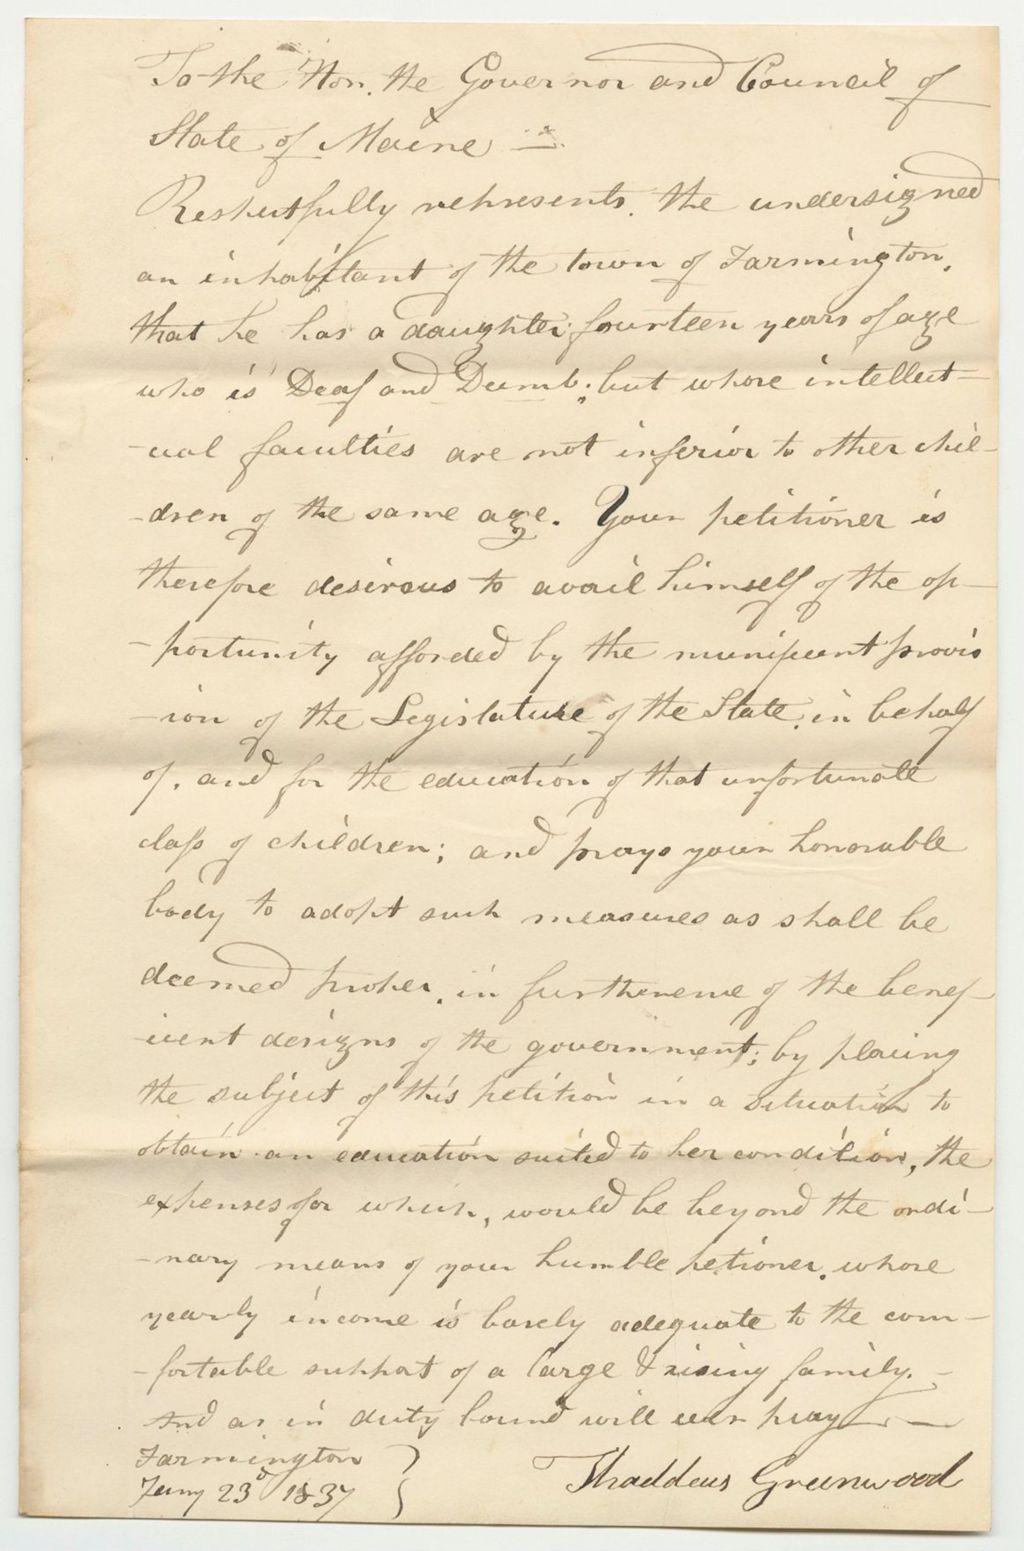 To the Hon. the Governor and Council of
State of Maine
Respectfully represents. the undersigned
an inhabitant of the town of Farmington,
that he has a daughter fourteen years of age
who is Deaf and Dumb; but whose intellect-
-ual faculties are not inferior to other chil-
-dren of the same age. Your petitioner is
therefore desirous to avail himself of the op-
-portunity afforded by the munificent provis
-ion of the Legislature of the State, in behalf
of, and for the education of that unfortunate
class of children; and prays your honorable
body to adopt such measures as shall be
deemed proper, in furtherence of the benef-
-icent designs of the government; by placing
the subject of this petition in a situation to
obtain an education suited to her condition, the
expenses for which, would be beyond the ordi-
-nary means of your humble petioner, whose
yearly income is barely adequate to the com-
-fortable support of a large & rising family.-
And as in duty bound will ever pray
Farmington
Thaddeus Greenwood
Jany 23d 1837